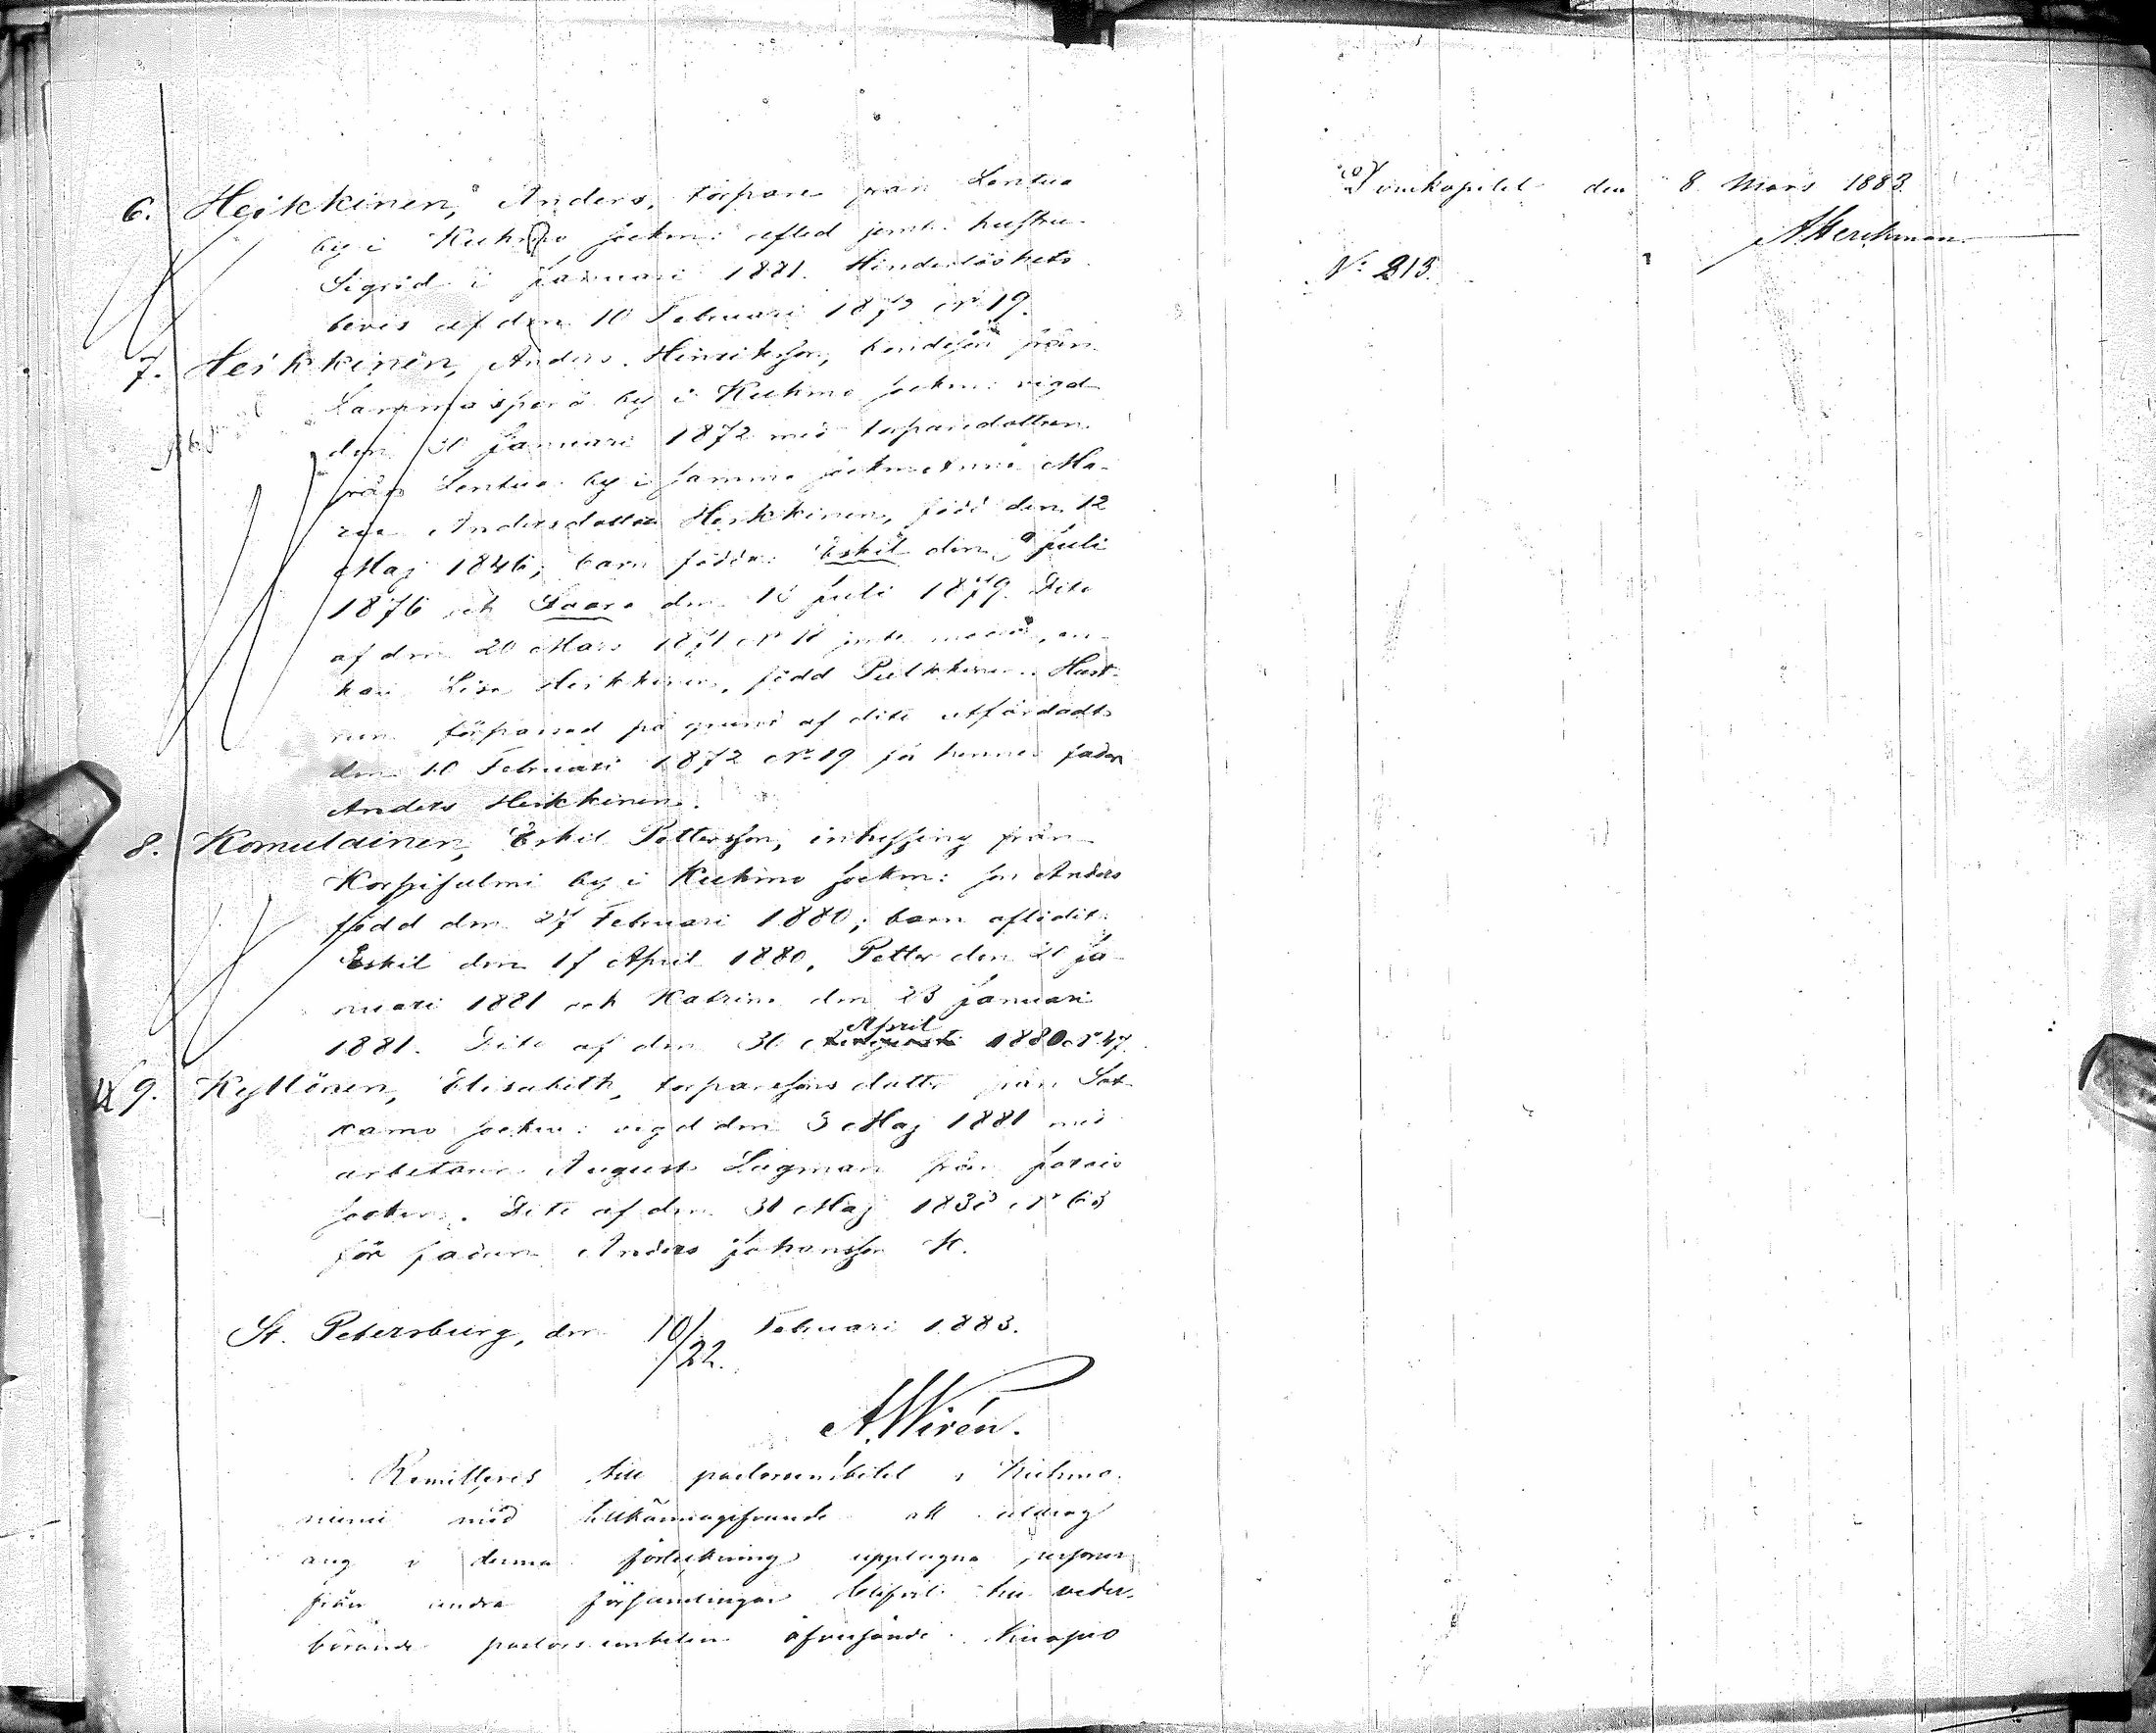 6. Heikkinen, Anders, torpare från Lentua
by i Kuhmo sockn: afled jemte hustru
Sigrid i Januari 1881. Hinderlöshets
bevis af den 10 Februari 1872 No 19.
7. Heikkinen, Anders Henriksson, bondeson från
Lammasperä by i Kuhmo sockn: vigd
den 30 Januari 1872 med torparedottren
från Lentua by i samma sockn Anna Ma-
ria Andersdotter Heikkinen, född den 12
Maj 1846; barn födda: Eskil den 9 Juli
1876 och Saara den 15 Juli 1879. Dito
af den 20 Mars 1871 No 18 jemte modren, en-
kan Lisa Heikkinen, född Pulkkinen. Hust-
run förpassad på grund af dito utfärdadt
den 10 Februari 1872 No 19 för hennes fader
Anders Heikkinen.
8. Komulainen, Eskil Pettersson, inhyssing från
Korpisalmi by i Kuhmo sockn: son Anders
född den 27 Februari 1880; barn aflidit:
Eskil den 17 April 1880, Petter den 21 Ja-
nuari 1881 och Katrina den 23 Januari
1881. Dito af den 30 April 1880 No 47.
9. Kyllönen, Elisabeth, torparesons dotter från Sot-
kamo sockn: vigd den 3 Maj 1881 med
arbetaren August Lagman från Jorois
sockn. Dito af den 31 Maj 1833 No 63
för fadren Anders Johansson K.
St. Petersburg, den 10/22. Februari 1883.
A. Wirén.
Remitteres till pastorsembetet i Kuhmo-
niemi med tillkännagifvande att utdrag
ang i denna förteckning upptagna personer
från andra församlingar blifvit till veder-
börande pastorsembeten öfversände. Kuopio
Domkapitel den 8 Mars 1883.
A. Herckman
No 213.